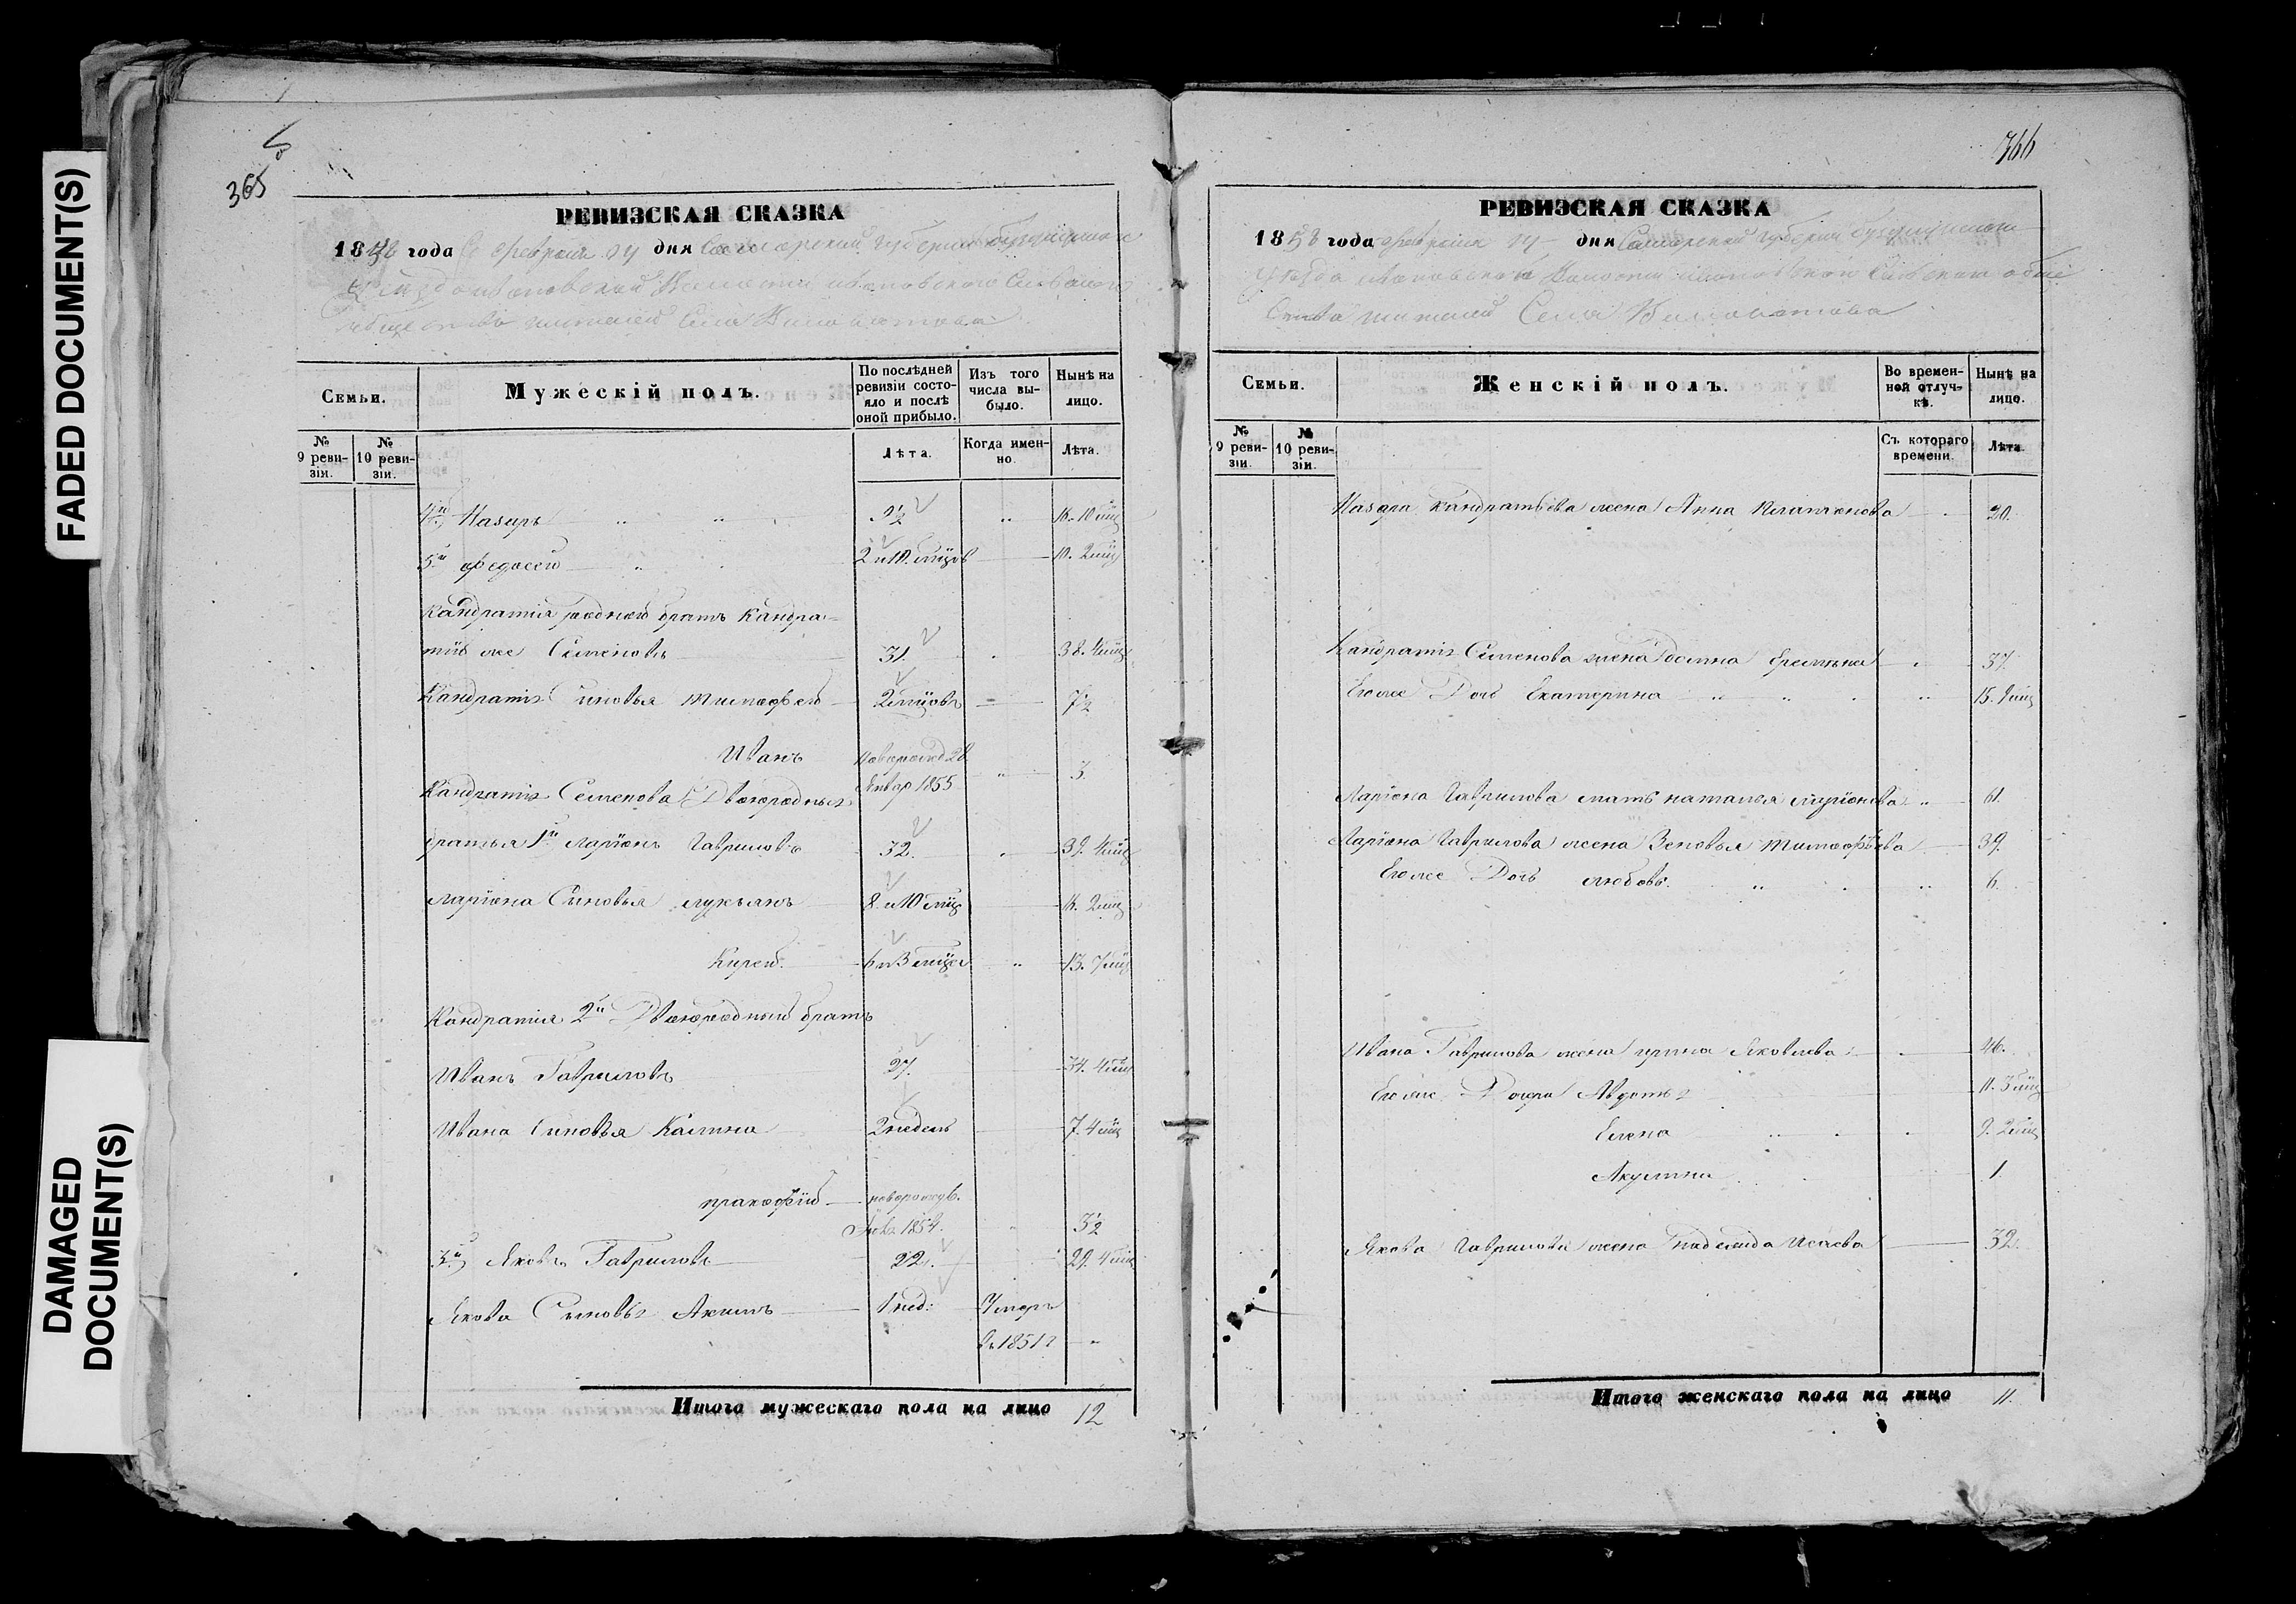 FADED DOCUMENT(S)
DAMAGED
DOCUMENT(S)
365
РЕВИЗСКАЯ СКАЗКА
1858 года Февраля дня Самарской губернии
Общества жителей Села
Семьи.
Мужескій полъ.
По послѣдней ревизіи состояло и послѣ оной прибыло.
Изъ того числа выбыло.
Нынѣ на лицо.
№ 9 ревизіи.
№ 10 ревизіи.
Лѣта.
Когда именно.
Лѣта.
4й Назаръ 9½ 16. 10 мц
5й Федосей 2 и 10. мцовъ 10. 2 мц
Кандратія родной братъ Кандра-
тій же Семеновъ 31. 38. 4 мц
Кандратія Сыновья Тимофей 2 мцовъ 7½
Иванъ
Январ 1855 3.
Кандратія Семенова Двоюродныя
братья 1й Ларіонъ Гавриловъ 32. 39. 4 мц
Ларіона Сыновья Лукьянъ 8. и 10 мцъ 16. 2 мц
Кирей. 6 и 3 мца 13. 7 мц
Кандратія 2й Двоюродный братъ
Иванъ Гавриловъ 27. 34. 4 мц
Ивана Сыновья Калина 2 недель 7. 4 мц
Пракофій
1854. 3½
3й Яковъ Гавриловъ 22. 29. 4 мц
Якова Сыновья Акимъ 1 нед: Умеръ
въ 1851 г
Итого мужескаго пола на лицо 12
366
РЕВИЗСКАЯ СКАЗКА
1858 года Февраля дня Самарской губерніи Бузулукскаго
Уезда Волости Сельскаго обще
ства жителей Села
Семьи.
Женскій полъ.
Во временной отлучкѣ.
Нынѣ на лицо.
№ 9 ревизіи.
№ 10 ревизіи.
Съ котораго времени.
Лѣта
Назара Кандратьева жена Анна Платонова 20.
Кандратія Семенова жена Домна 37.
Его же Дочь Екатерина 15. 9 мц
Ларіона Гаврилова мать Наталья Ларіонова 61.
Ларіона Гаврилова жена Зеновья Тимофѣева 39.
Его же Дочь Любовь. 6.
Ивана Гаврилова жена Ирина Яковлева 46.
Его же Дочери Авдотья 11. 3 мц
Елена 9. 2 мц
Акулина 1.
Якова Гаврилова жена Надежда Исаева 32.
Итого женскаго пола на лицо 11.